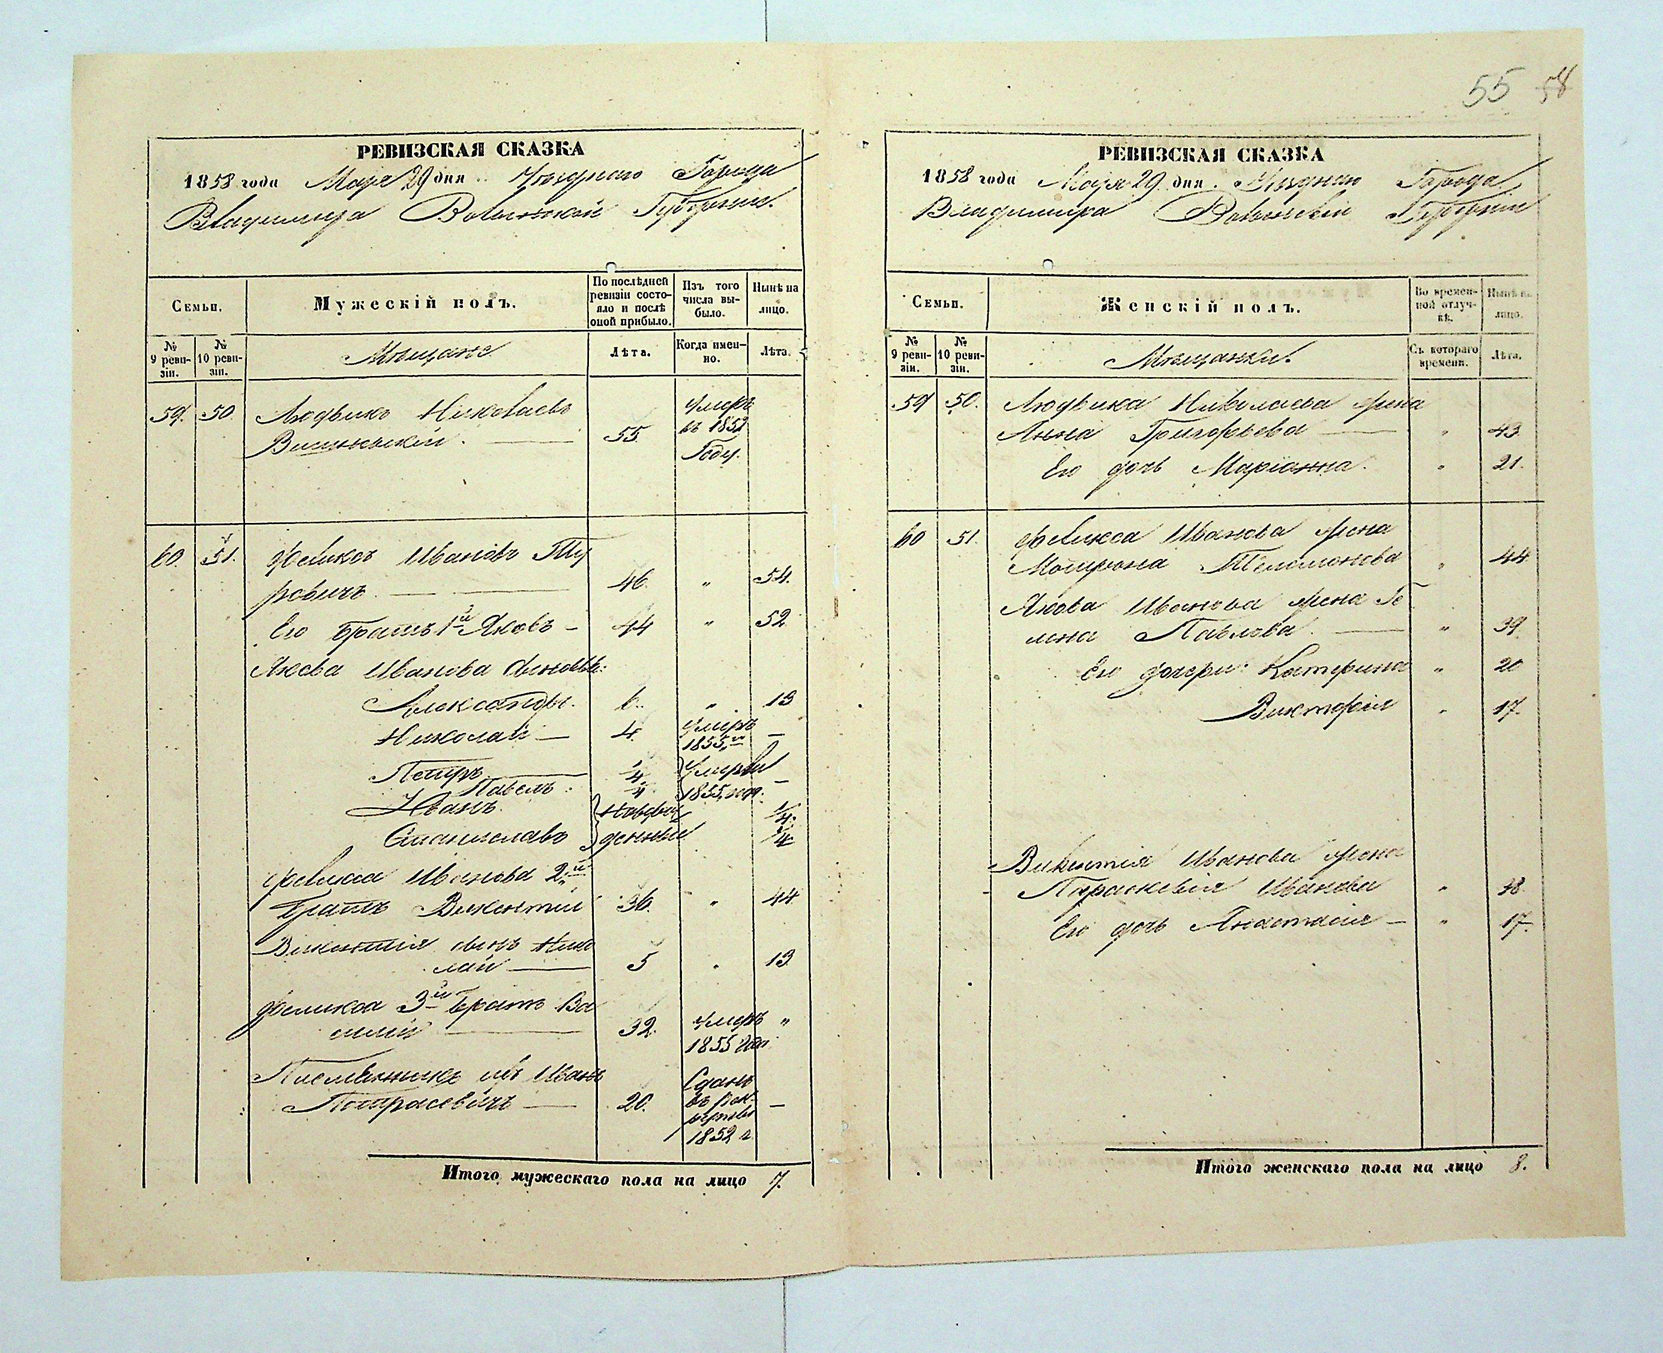 55 58
РЕВИЗСКАЯ СКАЗКА
1858 года Мая 29 дня Уѣзднаго Города
Владимира Волынской Губерніи.
Семьи.
Мужескій полъ.
По послѣдней ревизіи состояло и послѣ оной прибыло.
Изъ того числа выбыло.
Нынѣ на лицо.
№ 9 ревизіи.
№ 10 ревизіи.
Мѣщане
Лѣта.
Когда именно.
Лѣта.
59. 50. Людвикъ Николаевъ Умеръ
въ 1853
Вишневскій. 55. Году.
60. 51. Феликсъ Ивановъ Ту
ровичъ 46. " 54.
Его братъ 1й Яковъ 44 " 52.
Якова Иванова сыновья:
Александръ. 6. " 13
Николай 4. Умеръ 1855 –
Петръ 1/4 Умерли
Павелъ 1/4 1855 года –
Иванъ Новорож 1/4
Станиславъ денные 1/4
Феликса Иванова 2й
братъ Викентій 36. " 44
Викентія сынъ Нико
лай 5 " 13
Феликса 3й братъ Ва
силій 32. Умеръ "
1855 года
Племянникъ ихъ Иванъ Сданъ
20. въ рек
руты
1852 г.
Итого мужескаго пола на лицо 7.
РЕВИЗСКАЯ СКАЗКА
1858 года Мая 29 дня. Уѣзднаго Города
Владимира Волынской Губерніи
Семьи.
Женскій полъ.
Во временной отлучкѣ.
Нынѣ на лицо.
№ 9 ревизіи.
№ 10 ревизіи.
Мѣщанки.
Съ котораго времени.
Лѣта.
59 50. Людвика Николаева жена
Анна Григорьева " 43
Его дочь Маріанна. " 21.
60 51. Феликса Иванова жена
Мотрона " 44
Якова Иванова жена Те
Павлова. " 39
Его дочери: Катерина " 20
Викторія " 17.
Викентія Иванова жена
Параскевія Иванова " 38.
Его дочь Анастасія – " 17.
Итого женскаго пола на лицо 8.